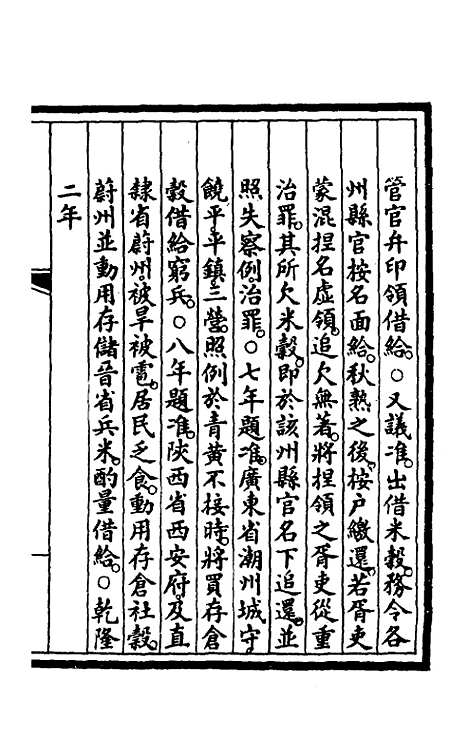 管官弁印領借給。○又議准。出借米穀。務令各
州縣官按名面給。秋熟之後。按戶繳還。若胥吏
蒙混捏名虛領。追欠無著。將捏領之胥吏從重
治罪。其所欠米穀。即於該州縣官名下追還。並
照失察例治罪。○七年題准。廣東省潮州城守
饒平平鎮三營。照例於青黃不接時。將買存倉
穀借給窮兵。○八年題准。陝西省西安府。及直
隸省蔚州。被旱被雹。居民乏食。動用存倉社穀。
蔚州並動用存儲晉省兵米。酌量借給。○乾隆
二年